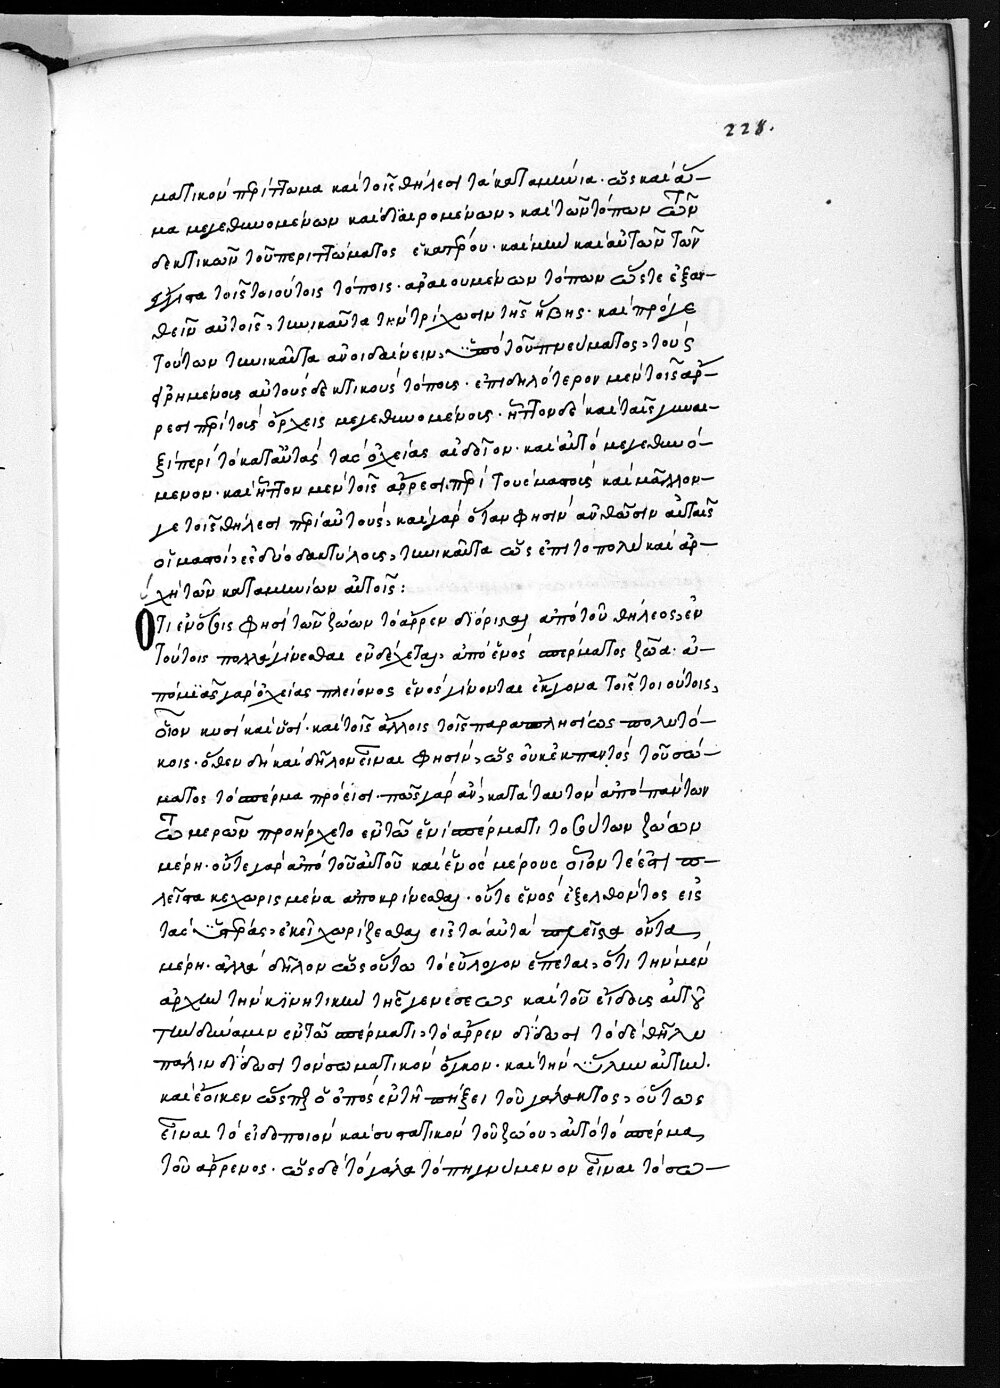 228.
ματικὸν περίττωμα καὶ τοῖς θήλεσι τὰ καταμήνια· ὡς καὶ ἅ-
μα μεγεθυνομένων καὶ διαιρομένων, καὶ τῶν τόπων τῶν
δεκτικῶν τοῦ περιττώματος ἑκατέρου· καὶ μὴν καὶ αὐτῶν τῶν
τοῖς τοιούτοις τόποις· ἀραιουμένων τόπων ὥστε ἐξαν-
θεῖν αὐτοῖς, τηνικαῦτα τὴν τρίχωσιν τῆς ἥβης· καὶ πρός γε
τούτων τηνικαῦτα ἀνοιδαίνειν, ὑπὸ τοῦ πνεύματος, τοὺς
εἰρημένους αὐτοὺς δεκτικοὺς τόπους· ἐπιδηλότερον μὲν τοῖς ἄρ-
ρεσι περὶ τοὺς ὄρχεις μεγεθυνομένοις· ἧττον δὲ καὶ ταῖς γυναι-
ξὶ περὶ τὸ κατ' αὐτὰς τὰς ὀχείας αἰδοῖον· καὶ αὐτὸ μεγεθυνό-
μενον· καὶ ἧττον μὲν τοῖς ἄρρεσι περὶ τοὺς μαστοὺς καὶ μᾶλλον
γε τοῖς θήλεσι περὶ αὐτούς, καὶ γὰρ ὅταν φησὶν αὐξηθῶσιν αὐταῖς
οἱ μαστοὶ, εἰς δύο δακτύλους, τηνικαῦτα ὡς ἐπὶ τὸ πολὺ καὶ ἀρ-
χὴ τῶν καταμηνίων αὐτοῖς:
Ὅτι ἐν ὅσοις φησὶ τῶν ζώων τὸ ἄρρεν διώρισται ἀπὸ τοῦ θήλεος, ἐν
τούτοις πολλὰ γίνεσθαι ἐνδέχεται, ἀπὸ ἑνὸς σπέρματος ζῶα· ἀ-
πὸ μιᾶς γὰρ ὀχείας πλείονος ἑνὸς γίνονται ἔκγονα τοῖς τοιούτοις,
οἷον κυσὶ καὶ ὑσὶ· καὶ τοῖς ἄλλοις τοῖς παραπλησίως πολυτό-
κοις· ὅθεν δὴ καὶ δῆλον εἶναι φησὶν, ὡς οὐκ ἐκ παντὸς τοῦ σώ-
ματος τὸ σπέρμα πρόεισι· πῶς γὰρ ἂν, κατὰ ταυτὸν ἀπὸ πάντων
τῶν μερῶν προήρχετο ἐν τῷ ἑνὶ σπέρματι τοσούτων ζώων
μέρη· οὔτε γὰρ ἀπὸ τοῦ αὐτοῦ καὶ ἑνὸς μέρους οἷόν τέ ἐστι π-
λεῖστα κεχωρισμένα ἀποκρίνεσθαι· οὔτε ἑνὸς ἐξελθόντος εἰς
τὰς ὑστέρας, ἐκεῖ χωρίζεσθαι εἰς τὰ αὐτὰ πλεῖστα ὄντα
μέρη· ἀλλὰ δῆλον ὡς οὕτω τὸ εὔλογον ἕπεται, ὅτι τὴν μὲν
ἀρχὴν τὴν κινητικὴν τῆς γενέσεως καὶ τοῦ εἴδους αὐτοῦ
τὴν δύναμιν ἐν τῷ σπέρματι, τὸ ἄρρεν δίδωσι τὸ δὲ θῆλυ
πάλιν δίδωσι τὸν σωματικὸν ὄγκον· καὶ τὴν ὕλην αὐτὴν.
καὶ ἔοικεν ὥσπερ ὁ ὀπὸς ἐν τῇ πήξει τοῦ γάλακτος, οὕτως
εἶναι τὸ εἰδοποιὸν καὶ συστατικὸν τοῦ ζώου, αὐτὸ τὸ σπέρμα
τοῦ ἄρρενος· ὡς δὲ τὸ γάλα τὸ πηγνύμενον εἶναι τὸ σω-